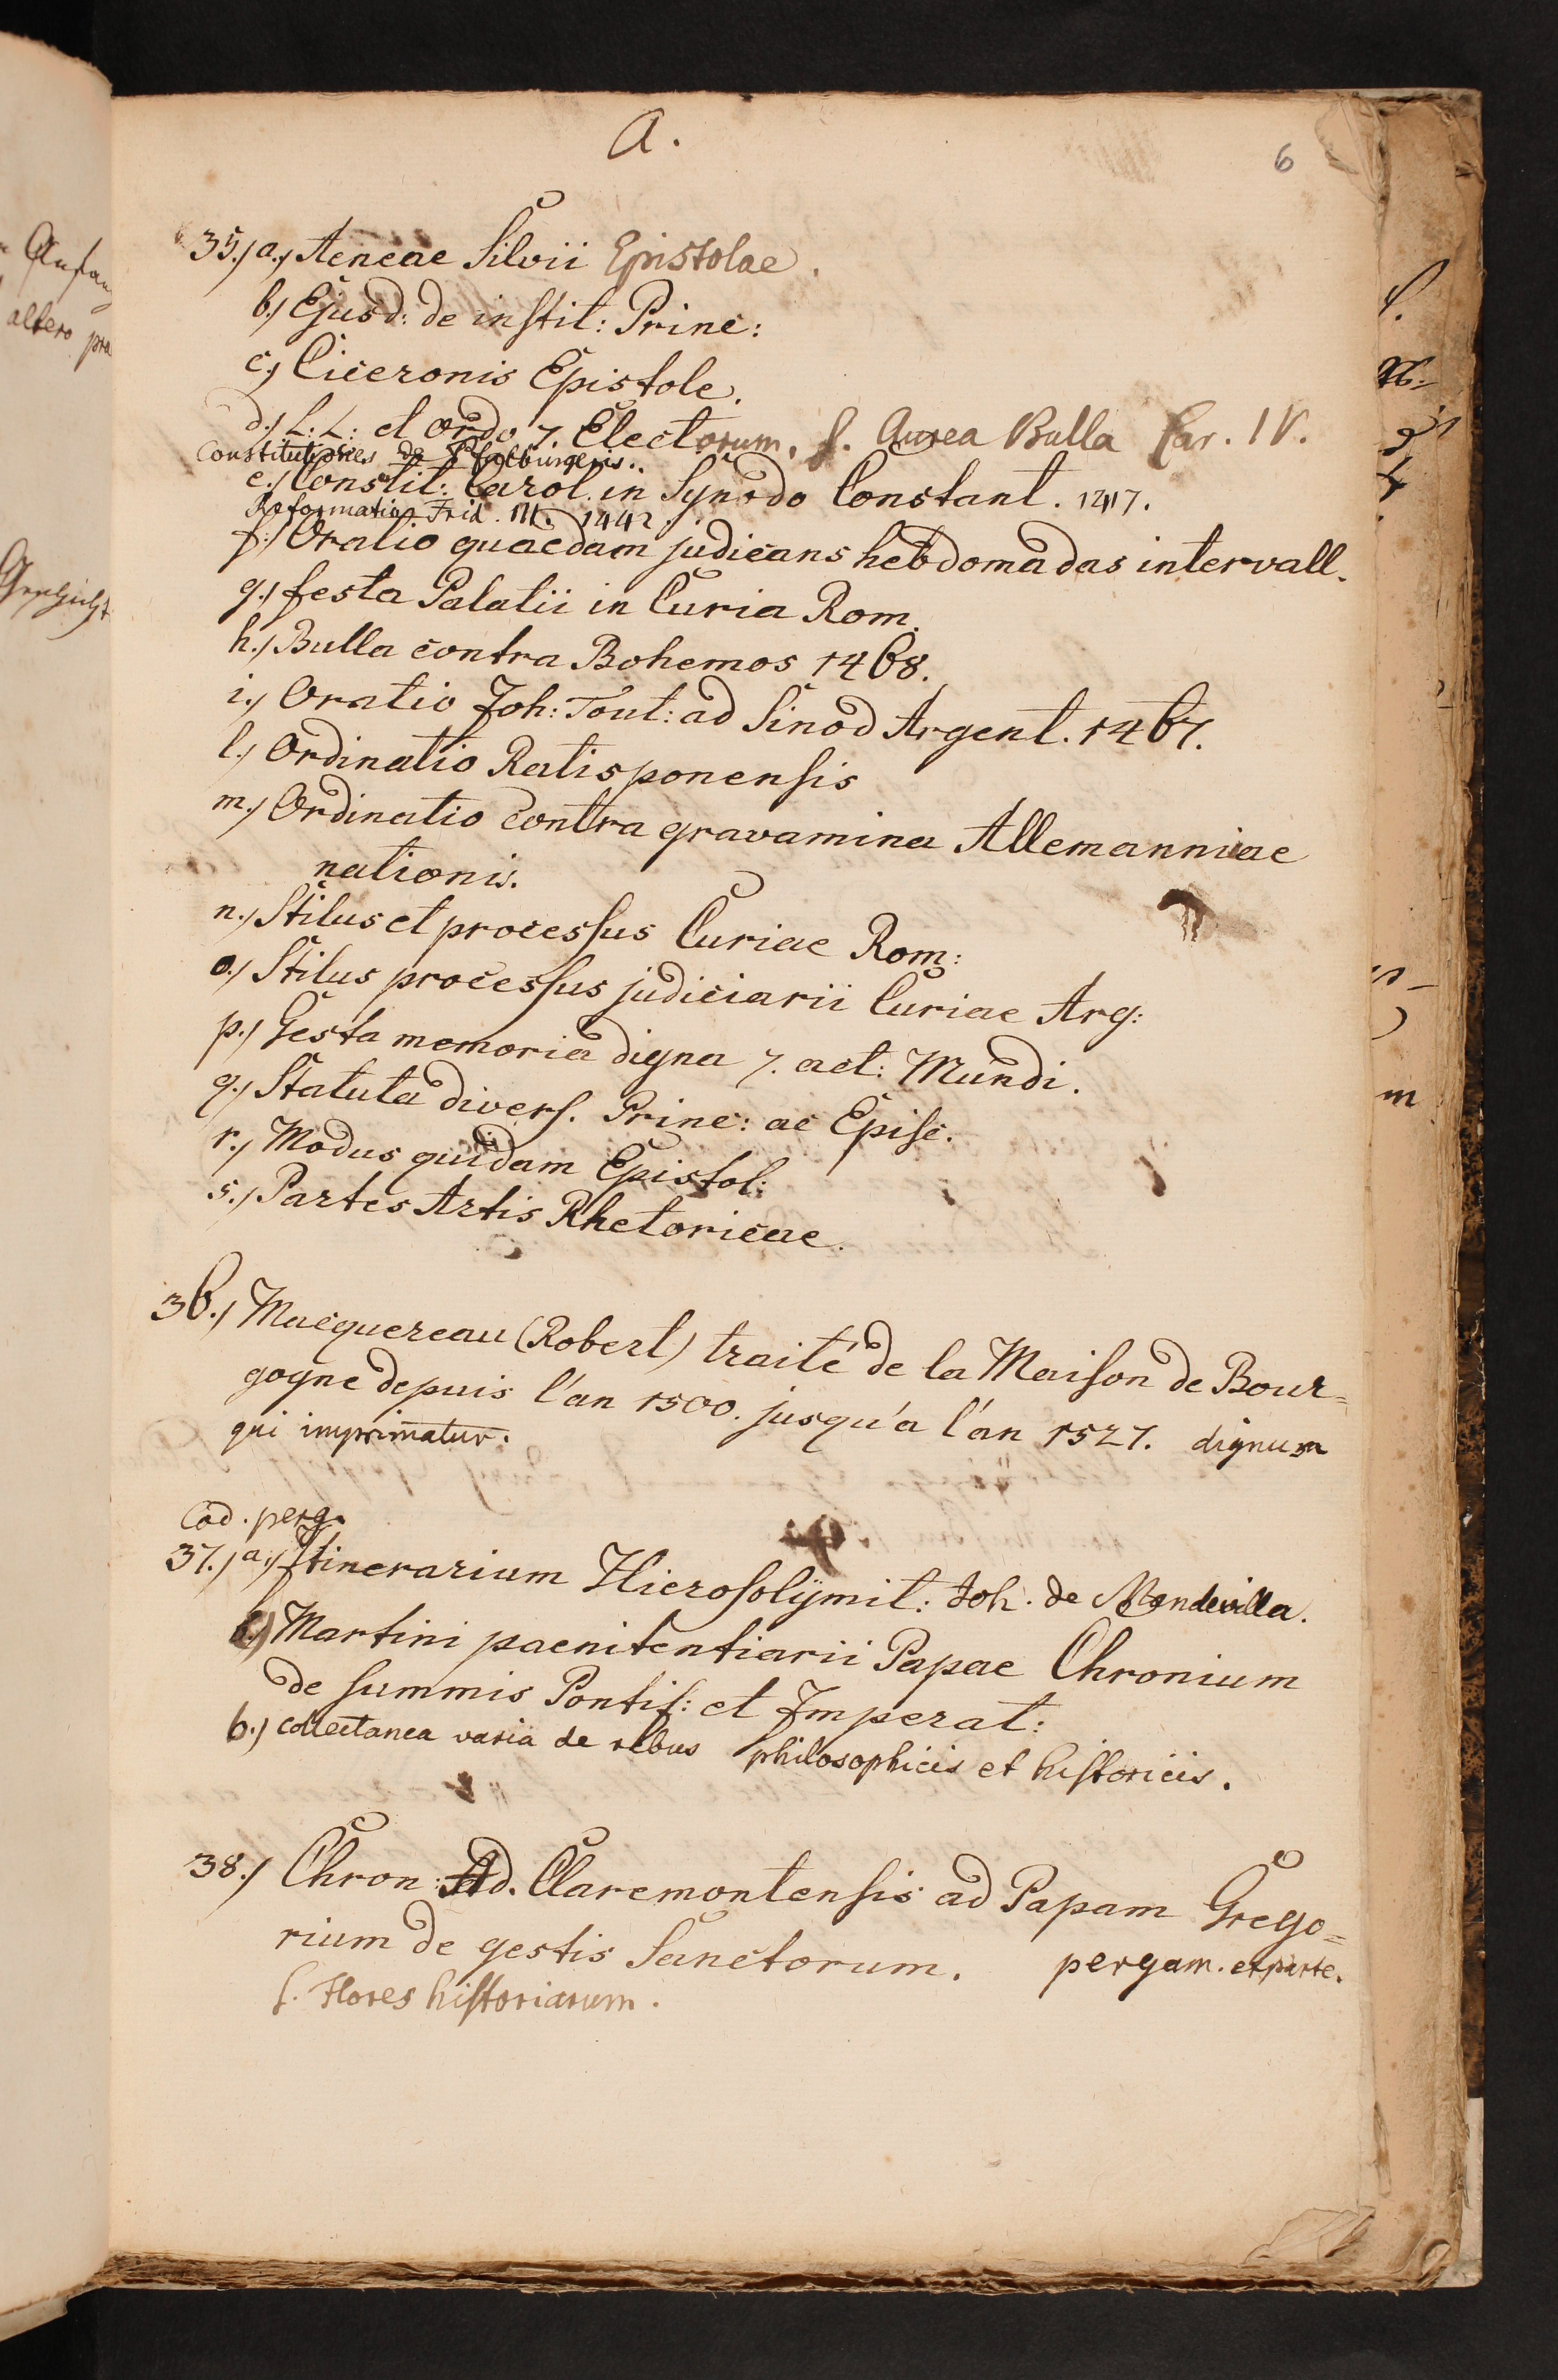 A.
6
35.) a.) Aeneae Silvii Epistolae.
b.) Ejusd: de instit: Princ:
c.) Ciceronis Epistole.
d.) L: L: et ordo 7. Electorum, s. Aurea Bulla Car. IV.
Constitutiones de Pfalburgeris..
e.) Constit: Carol. in Synodo Constant. 1417.
Reformatio Frid. III. 1442.
f.) Oratio quaedam judicans hebdomadas intervall.
g.) festa Palatii in Curia Rom.
h.) Bulla contra Bohemos 1468.
i.) Oratio Joh: Tout: ad Sinod Argent. 1467.
l.) Ordinatio Ratisponensis
m.) Ordinatio contra gravamina Allemanniae
nationis.
n.) Stilus et processus Curiae Rom:
o.) Stilus processus judiciarii Curiae Arg:
p.) Gesta memoria digna 7. aet: Mundi.
q.) Statuta divers. Princ: ac Episc.
r.) Modus quidam Epistol:
s.) Partes Artis Rhetoricae.
36.) Macquereau (Robert) traité de la Maison de Bour=
gogne depuis l'an 1500. jusqu'a l'an 1527. dignum
qui imprimatur.
Cod. perg.
37.) a.) Itinerarium Hierosolÿmit: Joh. de Mandevilla.
Martini paenitentiarii Papae Chronium
de summis Pontif: et Imperat:
b.) collectanea varia de rebus philosophicis et historicis.
38.) Chron: Ad. Claremontensis ad Papam Grego=
rium de gestis Sanctorum. pergam. ex parte.
s. Flores historiarum.